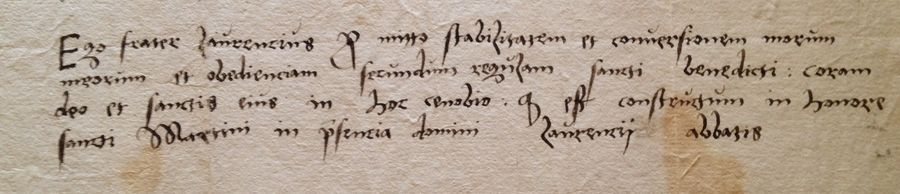 Ego frater Laurencius ꝓ mitto stabilitatem et conversionem morum
meorum et obedienciam secundum regulam sancti benedicti : coram
deo et sanctis eius in hoc cenobio : qd est constructum in honore
sancti Martini in p̄sencia domini Laurencij abbatis